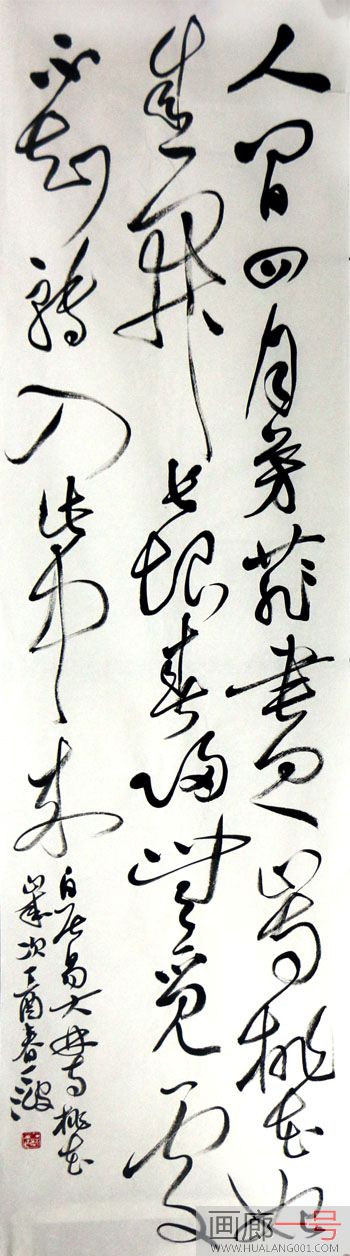 人间四月芳菲尽山寺桃花始
盛开长恨春归无觅处
不知转入此中来
白居易大林寺桃花
岁次丁酉春一波
画廊一号
WWW.HUALANG001.COM